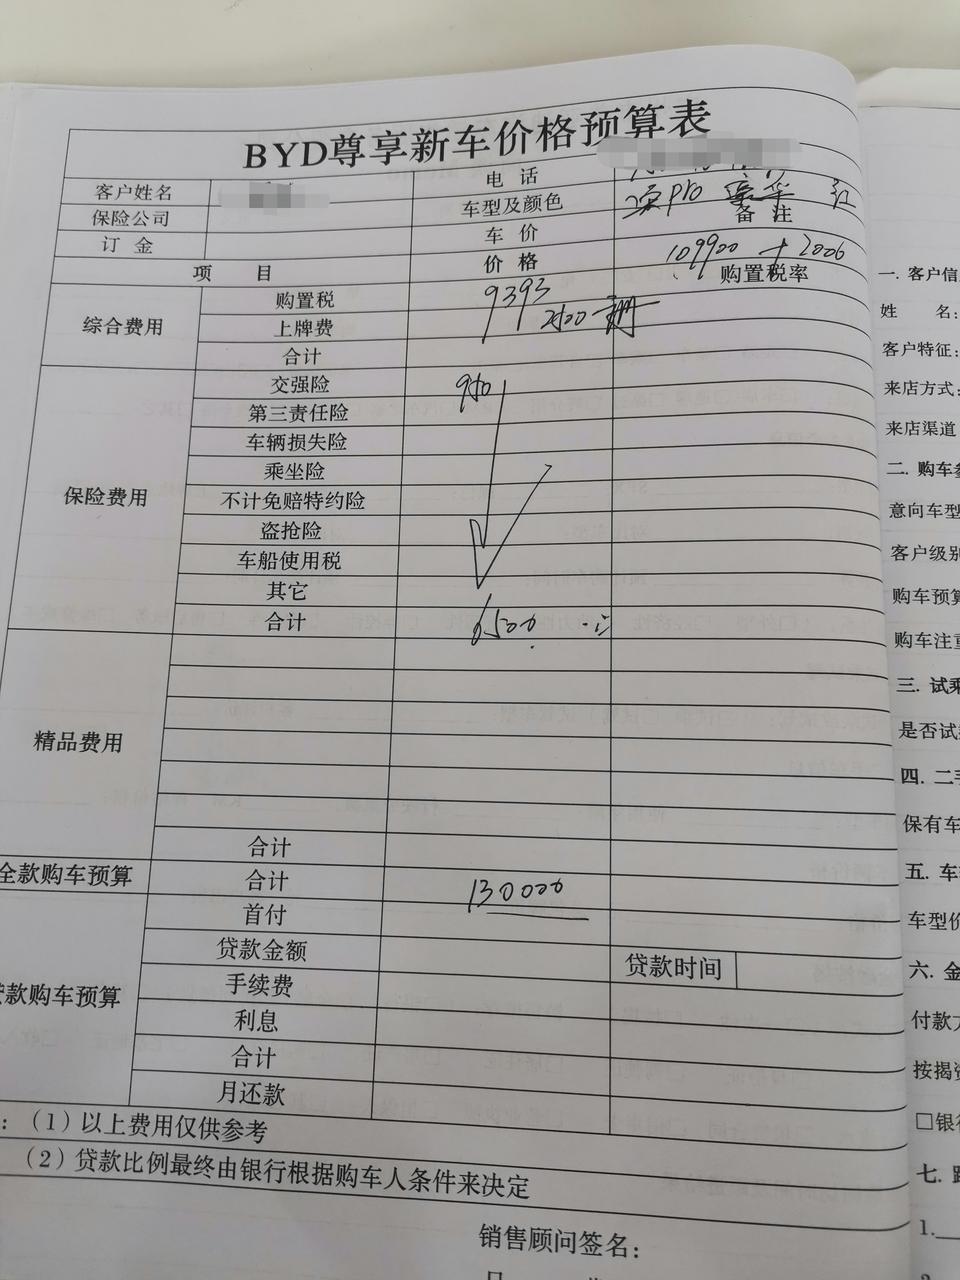 BYD尊享新车价格预算表
客户姓名 电 话
保险公司 车型及颜色 pro 豪华 红
订 金 车 价 备 注
项 目 价 格 109900 + 2006
购置税率
综合费用 购置税 9393
上牌费 2500
合计
保险费用 交强险 950
第三责任险
车辆损失险
乘坐险
不计免赔特约险
盗抢险
车船使用税
其它
合计 6500
精品费用
合计
全款购车预算 合计 130000
款购车预算 首付
贷款金额 贷款时间
手续费
利息
合计
月还款
：（1）以上费用仅供参考
（2）贷款比例最终由银行根据购车人条件来决定
销售顾问签名：
一. 客户信
姓 名：
客户特征：
来店方式：
来店渠道
二. 购车
意向车型
客户级别
购车预算
购车注重
三. 试乘
是否试
四. 二手
保有车
五. 车
车型价
六. 金
付款
按揭
□银行
七.
1.